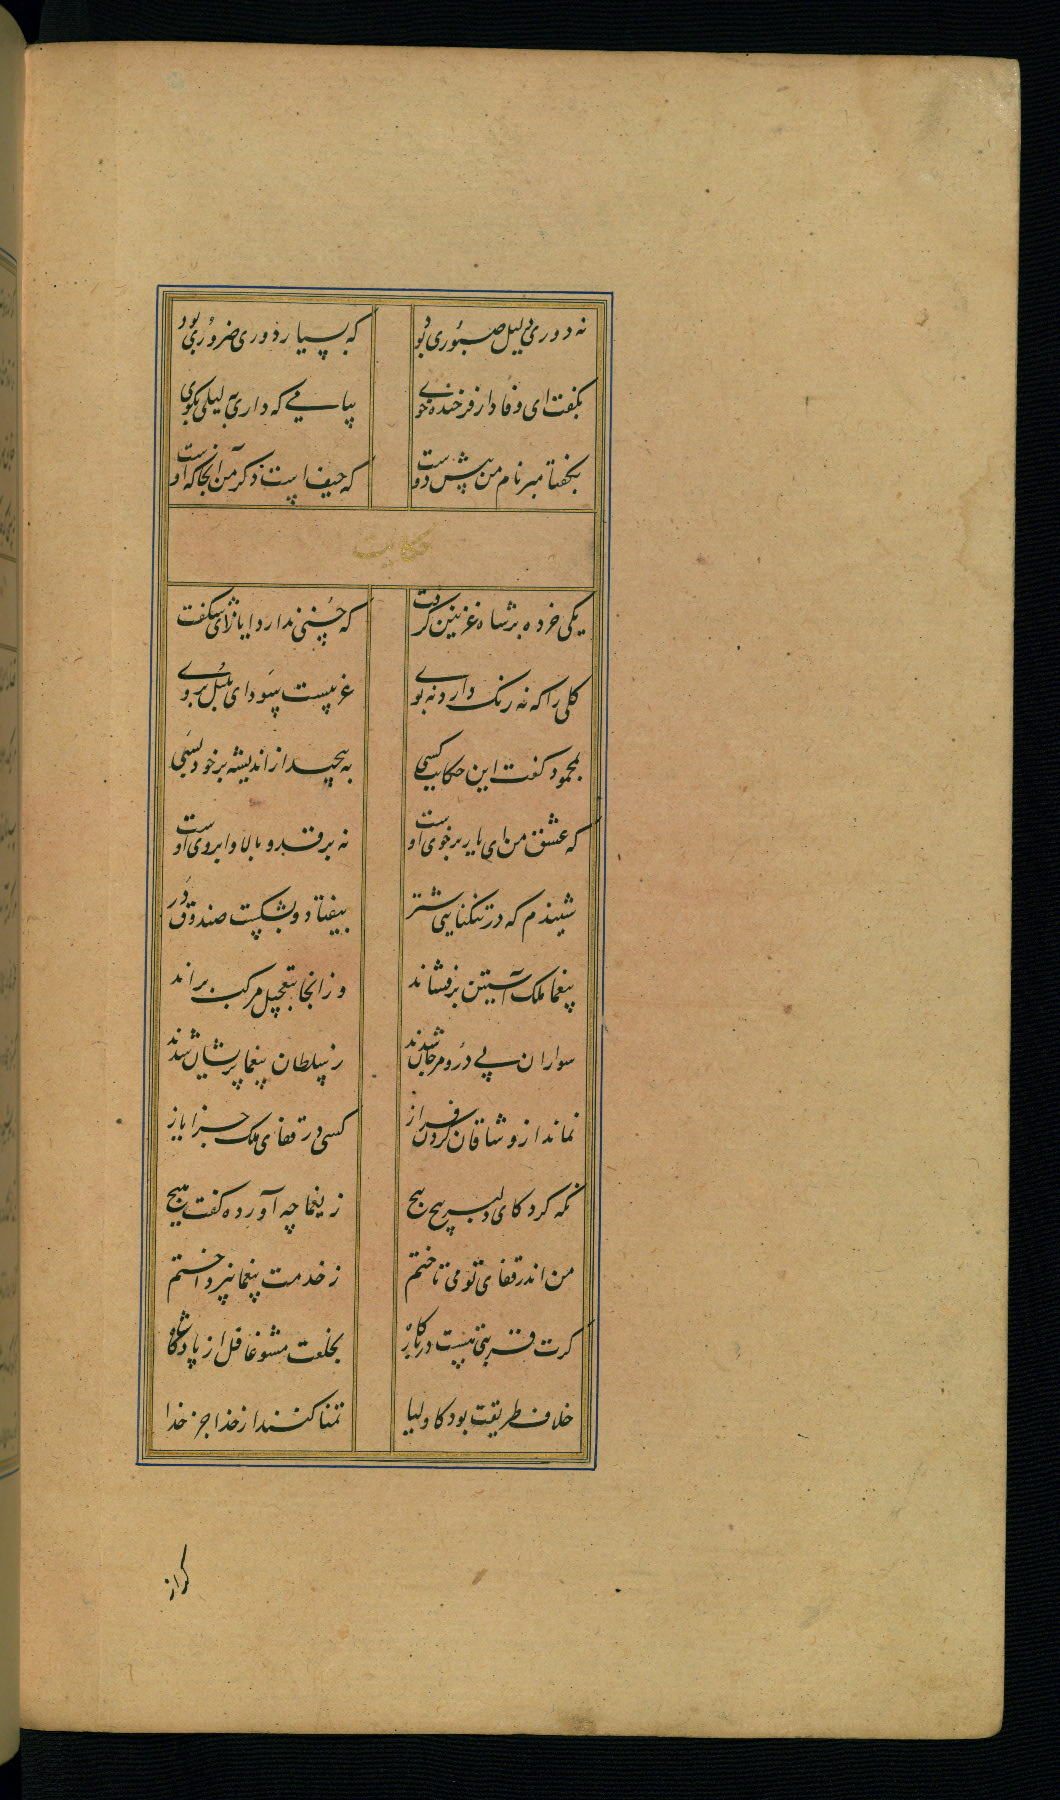 نه دوری دلیل صبوری بود که بسیار دوری ضروری بود
بگفت ای وفادار فرخنده خوی پیامی که داری به لیلی بگوی
بگفتا مبر نام من پیش دوست که حیف است ذکر من آنجا که اوست
حکایت
یکی خرده بر شاه غزنین گرفت که حسنی ندارد ایاز ای شگفت
گلی را که نه رنگ دارد نه بوی غریبست سودای بلبل بروی
بمحمود گفت این حکایت کسی به پیچید از اندیشه بر خود بسی
که عشق من ای یار بر خوی اوست نه بر قد و بالا و ابروی اوست
شنیدم که در تنکنایی شتر بیفتاد و بشکست صندوق در
بیغما ملک آستین برفشاند وزانجا بتعجیل مرکب براند
سواران پی در و مرجان شدند ز سلطان بیغما پریشان شدند
نماند از وشاقان گردن فراز کسی در قفای ملک جز ایاز
نگه کرد کای دلبر پیچ پیچ ز یغما چه آورده گفت هیچ
من اندر قفای تو می تاختم ز خدمت بیغما نپرداختم
گرت قربتی نیست در بارگاه بخلعت مشو غافل از پادشاه
خلاف طریقت بود کاولیا تمنا کنند از خدا جز خدا
گر از